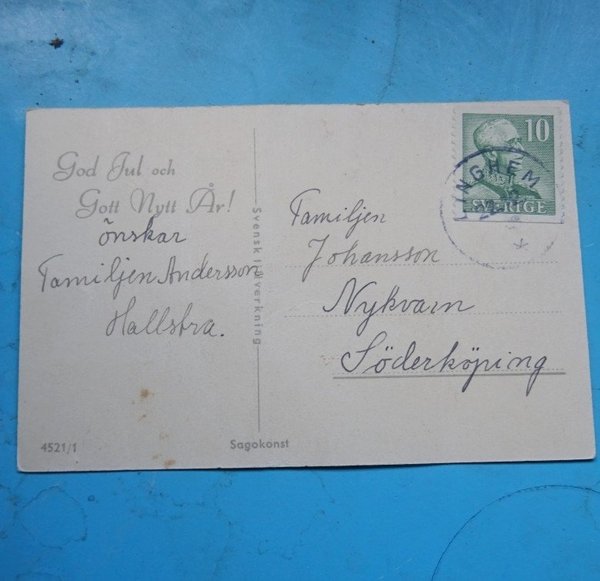 God Jul och
Gott Nytt År!
önskar
Familjen Andersson
Hallstra.
4521/1
Svensk tillverkning
Sagokonst
10
SVERIGE
LINGHEM
22
Familjen
Johansson
Nykvarn
Söderköping